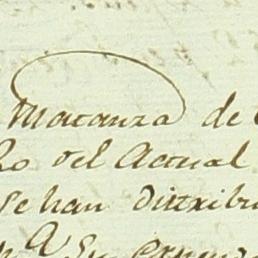 Matanza de
ho del Actual
se han Distribu